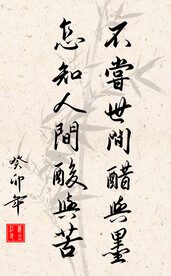 不嘗世間醋與墨
怎知人間酸與苦
癸卯年